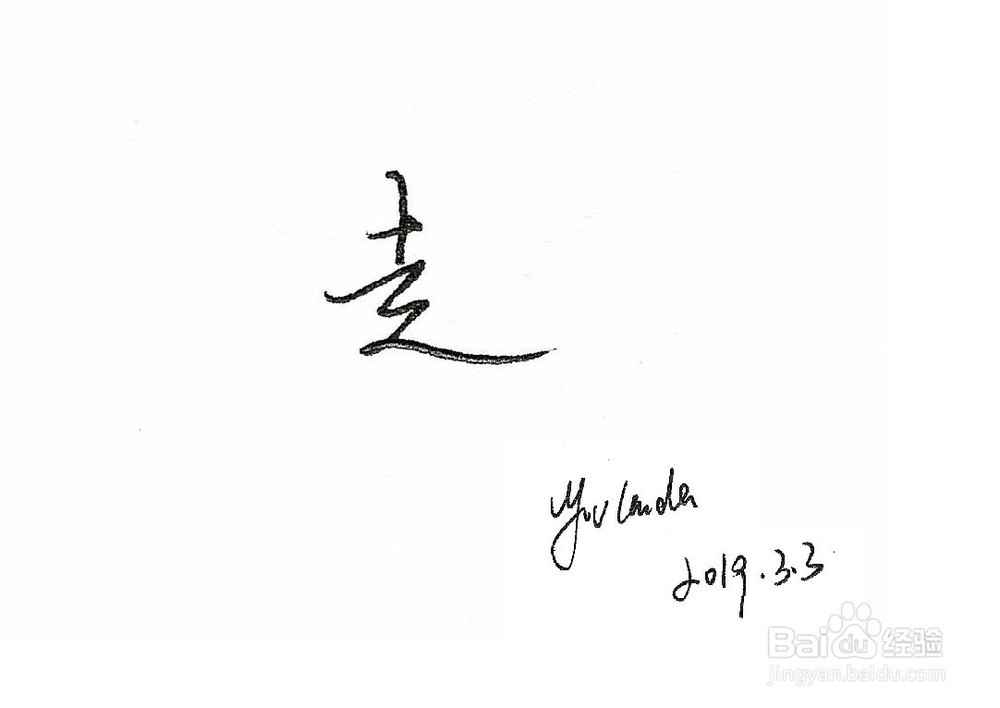 走
Yovlanda
2019.3.3
Baidu经验
jingyan.baidu.com